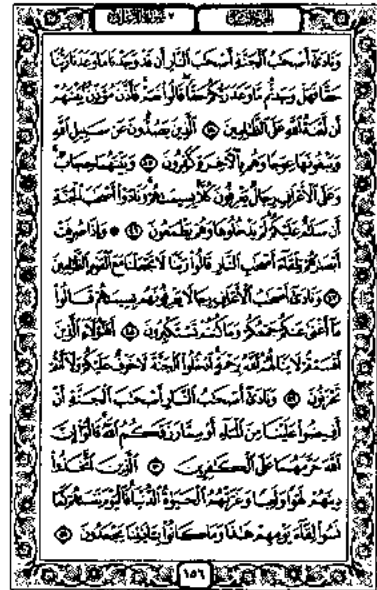 الجزء الثامن سورة الأعراف ٧
وَنَادَىٰٓ أَصْحَٰبُ ٱلْجَنَّةِ أَصْحَٰبَ ٱلنَّارِ أَن قَدْ وَجَدْنَا مَا وَعَدَنَا رَبُّنَا
حَقًّا فَهَلْ وَجَدتُّم مَّا وَعَدَ رَبُّكُمْ حَقًّا قَالُوا۟ نَعَمْ فَأَذَّنَ مُؤَذِّنٌۢ بَيْنَهُمْ
أَن لَّعْنَةُ ٱللَّهِ عَلَى ٱلظَّٰلِمِينَ ٤٤ ٱلَّذِينَ يَصُدُّونَ عَن سَبِيلِ ٱللَّهِ
وَيَبْغُونَهَا عِوَجًا وَهُم بِٱلْـَٔاخِرَةِ كَٰفِرُونَ ٤٥ وَبَيْنَهُمَا حِجَابٌ
وَعَلَى ٱلْأَعْرَافِ رِجَالٌ يَعْرِفُونَ كُلًّۢا بِسِيمَىٰهُمْ وَنَادَوْا۟ أَصْحَٰبَ ٱلْجَنَّةِ
أَن سَلَٰمٌ عَلَيْكُمْ لَمْ يَدْخُلُوهَا وَهُمْ يَطْمَعُونَ ٤٦ ۞ وَإِذَا صُرِفَتْ
أَبْصَٰرُهُمْ تِلْقَآءَ أَصْحَٰبِ ٱلنَّارِ قَالُوا۟ رَبَّنَا لَا تَجْعَلْنَا مَعَ ٱلْقَوْمِ ٱلظَّٰلِمِينَ
٤٧ وَنَادَىٰٓ أَصْحَٰبُ ٱلْأَعْرَافِ رِجَالًا يَعْرِفُونَهُم بِسِيمَىٰهُمْ قَالُوا۟
مَآ أَغْنَىٰ عَنكُمْ جَمْعُكُمْ وَمَا كُنتُمْ تَسْتَكْبِرُونَ ٤٨ أَهَٰٓؤُلَآءِ ٱلَّذِينَ
أَقْسَمْتُمْ لَا يَنَالُهُمُ ٱللَّهُ بِرَحْمَةٍ ٱدْخُلُوا۟ ٱلْجَنَّةَ لَا خَوْفٌ عَلَيْكُمْ وَلَآ أَنتُمْ
تَحْزَنُونَ ٤٩ وَنَادَىٰٓ أَصْحَٰبُ ٱلنَّارِ أَصْحَٰبَ ٱلْجَنَّةِ أَنْ
أَفِيضُوا۟ عَلَيْنَا مِنَ ٱلْمَآءِ أَوْ مِمَّا رَزَقَكُمُ ٱللَّهُ قَالُوٓا۟ إِنَّ
ٱللَّهَ حَرَّمَهُمَا عَلَى ٱلْكَٰفِرِينَ ٥٠ ٱلَّذِينَ ٱتَّخَذُوا۟
دِينَهُمْ لَهْوًا وَلَعِبًا وَغَرَّتْهُمُ ٱلْحَيَوٰةُ ٱلدُّنْيَا فَٱلْيَوْمَ نَنسَىٰهُمْ كَمَا
نَسُوا۟ لِقَآءَ يَوْمِهِمْ هَٰذَا وَمَا كَانُوا۟ بِـَٔايَٰتِنَا يَجْحَدُونَ ٥١
١٥٦